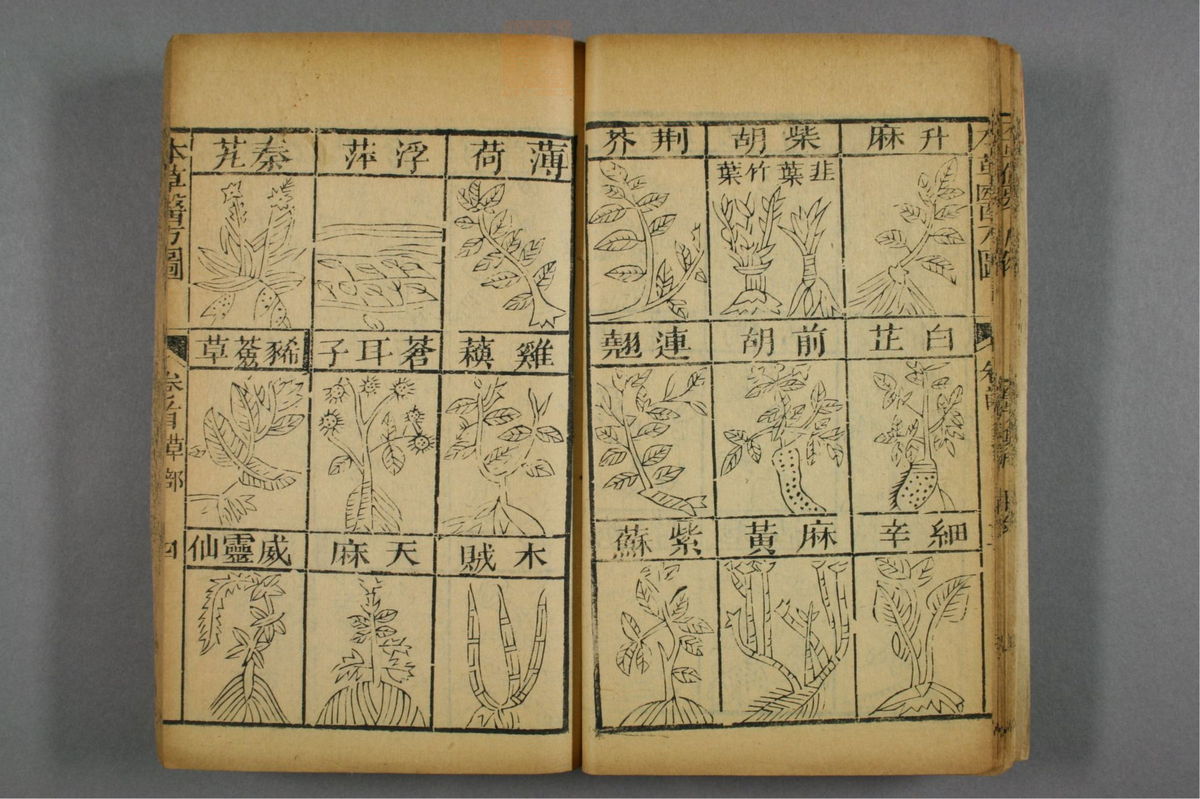 升麻
柴胡
韭葉竹葉
荆芥
白芷
前胡
連翹
細辛
麻黃
紫蘇
薄荷
浮萍
秦艽
雞蘇
蒼耳子
豨薟草
木賊
天麻
威靈仙
本草醫方圖
卷首草部
四